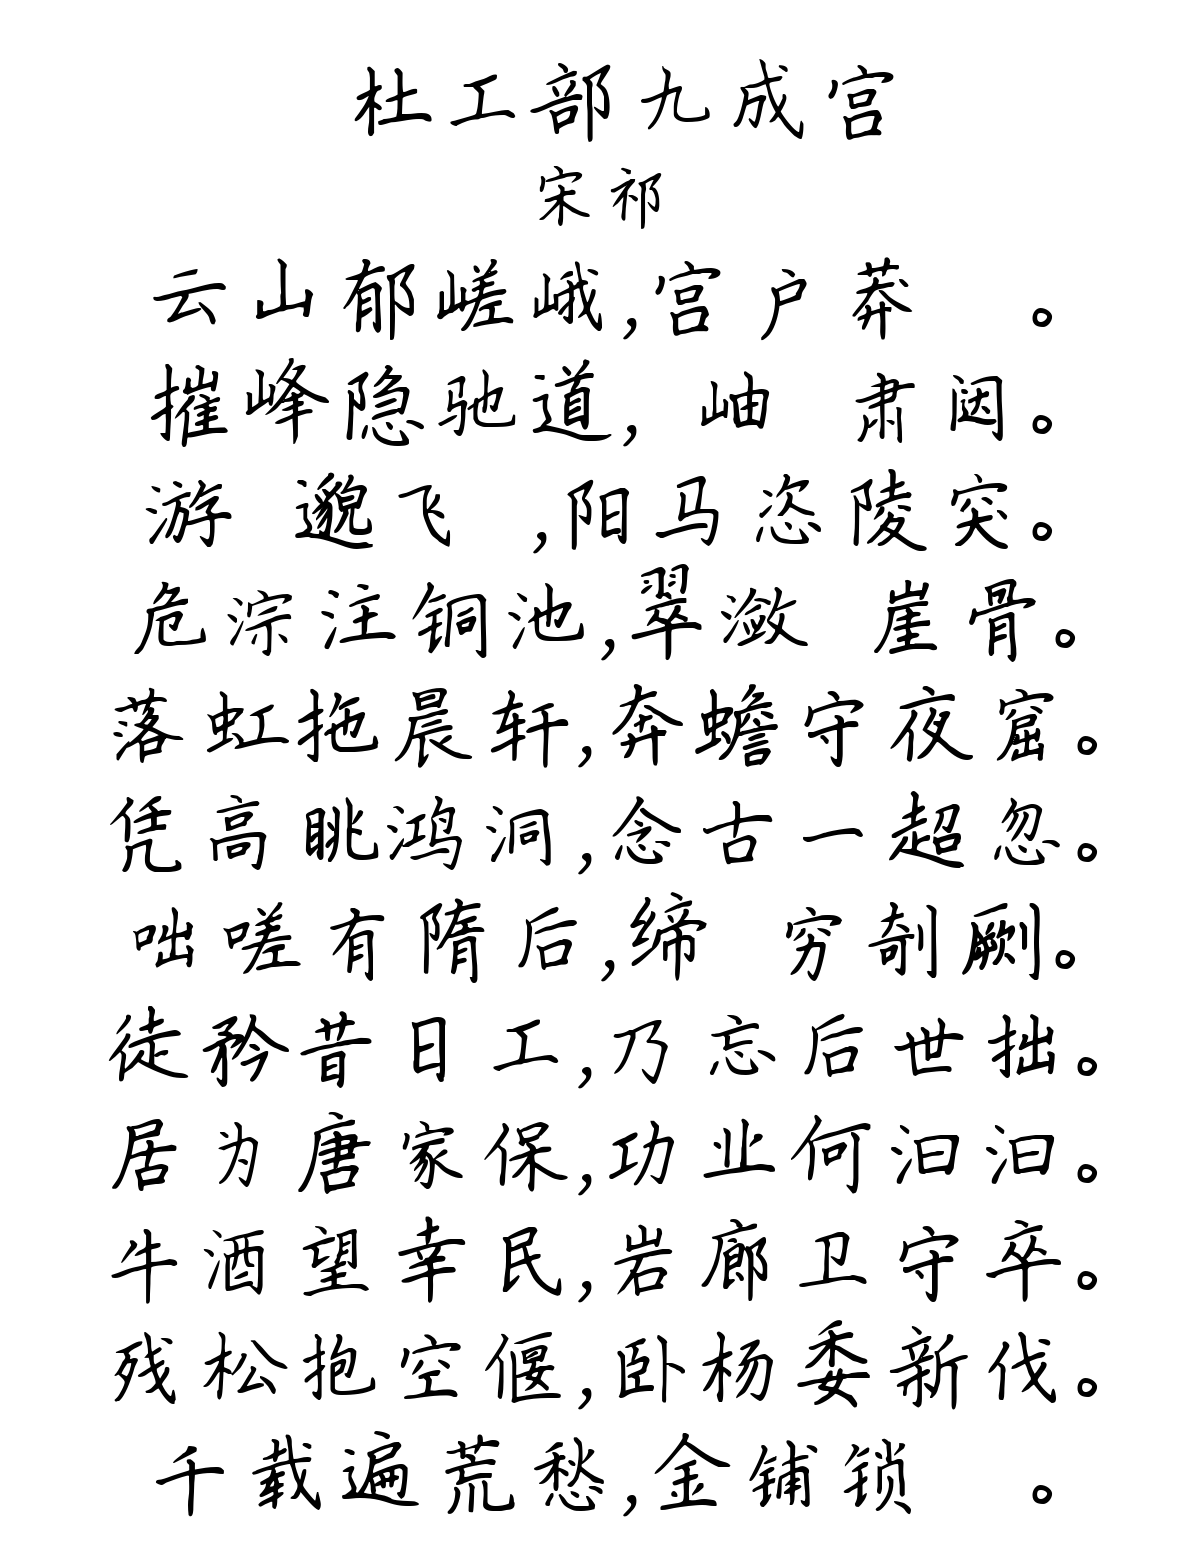 杜工部九成宫
宋祁
云山郁嵯峨,宫户莽 。
摧峰隐驰道, 岫 肃闼。
游 邈飞 ,阳马恣陵突。
危淙注铜池,翠潋 崖骨。
落虹拖晨轩,奔蟾守夜窟。
凭高眺鸿洞,念古一超忽。
咄嗟有隋后,缔 穷剞劂。
徒矜昔日工,乃忘后世拙。
居为唐家保,功业何汩汩。
牛酒望幸民,岩廊卫守卒。
残松抱空偃,卧杨委新伐。
千载遍荒愁,金铺锁 。